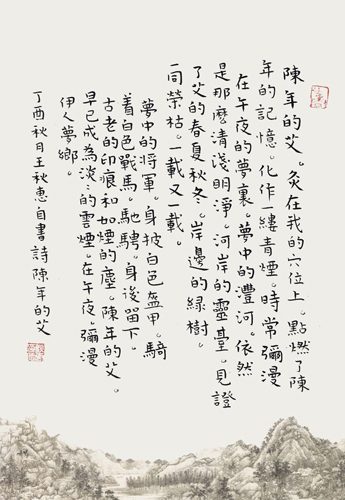 陳年的艾。灸在我的穴位上。點燃了陳
年的記憶。化作一縷青煙。時常彌漫
在午夜的夢裏。夢中的灃河。依然
是那麼清淺明淨。河岸的靈臺。見證
了艾的春夏秋冬。岸邊的綠樹。
一同榮枯。一載又一載。
夢中的將軍。身披白色盔甲。騎
着白色戰馬。馳騁。身後留下。
古老的印痕和如煙的塵。陳年的艾。
早已成為淡淡的雲煙。在午夜。彌漫
伊人夢鄉。
丁酉秋月王秋惠自書詩陳年的艾